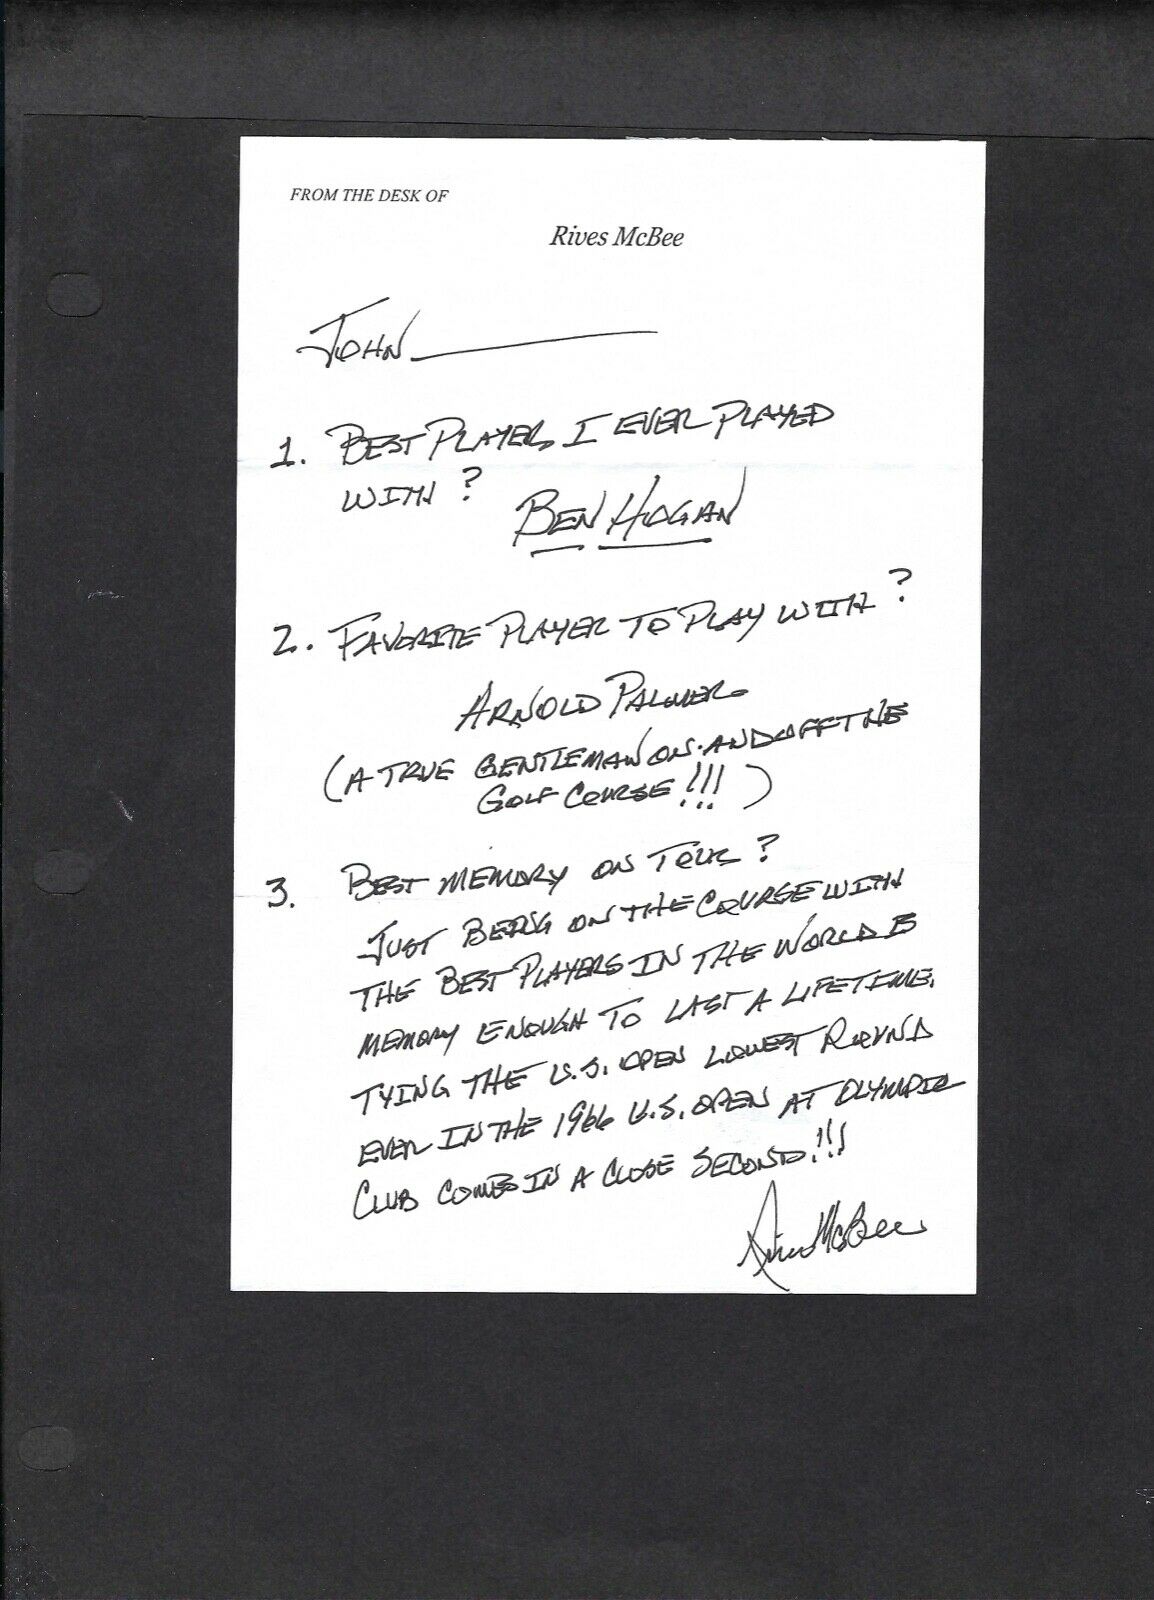 FROM THE DESK OF
Rives McBee
JOHN
1. BEST PLAYER I EVER PLAYED
WITH?
BEN HOGAN
2. FAVORITE PLAYER TO PLAY WITH?
ARNOLD PALMER
(A TRUE GENTLEMAN ON-AND OFF THE
GOLF COURSE!!!)
3. BEST MEMORY ON TOUR?
JUST BEING ON THE COURSE WITH
THE BEST PLAYERS IN THE WORLD IS
MEMORY ENOUGH TO LAST A LIFETIME.
TYING THE U.S. OPEN LOWEST ROUND
EVER IN THE 1966 U.S. OPEN AT OLYMPIC
CLUB COMES IN A CLOSE SECOND!!!
Rives McBee